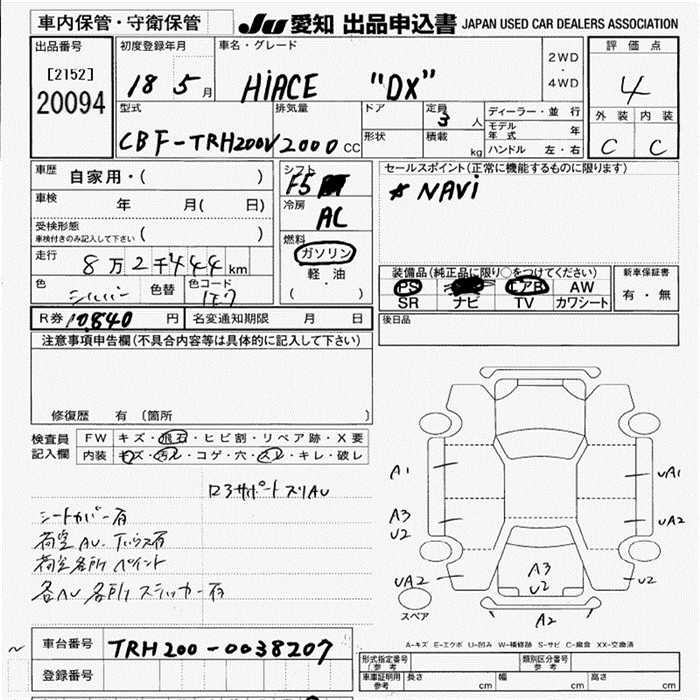 車内保管・守衛保管 JU 愛知 出品申込書 JAPAN USED CAR DEALERS ASSOCIATION
出品番号 初度登録年月 車名・グレード 評価点
[2152] 2WD・4WD
20094 18 5月 HIACE "DX" 4
型式 排気量 ドア 定員 3人 ディーラー・並行 外装 内装
モデル年式 年
CBF-TRH200V 2000cc 形状 積載 kg ハンドル 左・右 C C
車歴 自家用・( ) シフト F5 セールスポイント(正常に機能するものに限ります)
車検 年 月( 日) 冷房 AC ☆ NAVi
受検形態 車検付きのみ記入して下さい ( ) 燃料 ガソリン
走行 8万2千444km 軽油 装備品(純正品に限り○をつけてください) 新車保証書
色 シルバー 色替 色コード 1E7 ・( ) PS エアB AW 有・無
SR ナビ TV カワシート
R券 10,840円 名変通知期限 月 日 後日品
注意事項申告欄(不具合内容等は具体的に記入して下さい)
修復歴 有 〔箇所 〕
検査員 FW キズ・飛石・ヒビ割・リペア跡・X要
記入欄 内装 キズ・汚レ・コゲ・穴・スレ・キレ・破レ
ロアサポート スリAU
シートカバー有
荷室AU
荷室各所 ペイント
各AU 各所 ステッカー有
A1 UA1
A3 U2 UA2
UA2 A3 U2 U2
スペア A2
A-キズ E-エクボ U-凹み W-補修跡 S-サビ C-腐蝕 XX-交換済
車台番号 TRH200-0038207
登録番号
形式指定番号(参考) 類別区分番号(参考)
車庫証明用参考 長さ cm 幅 cm 高さ cm